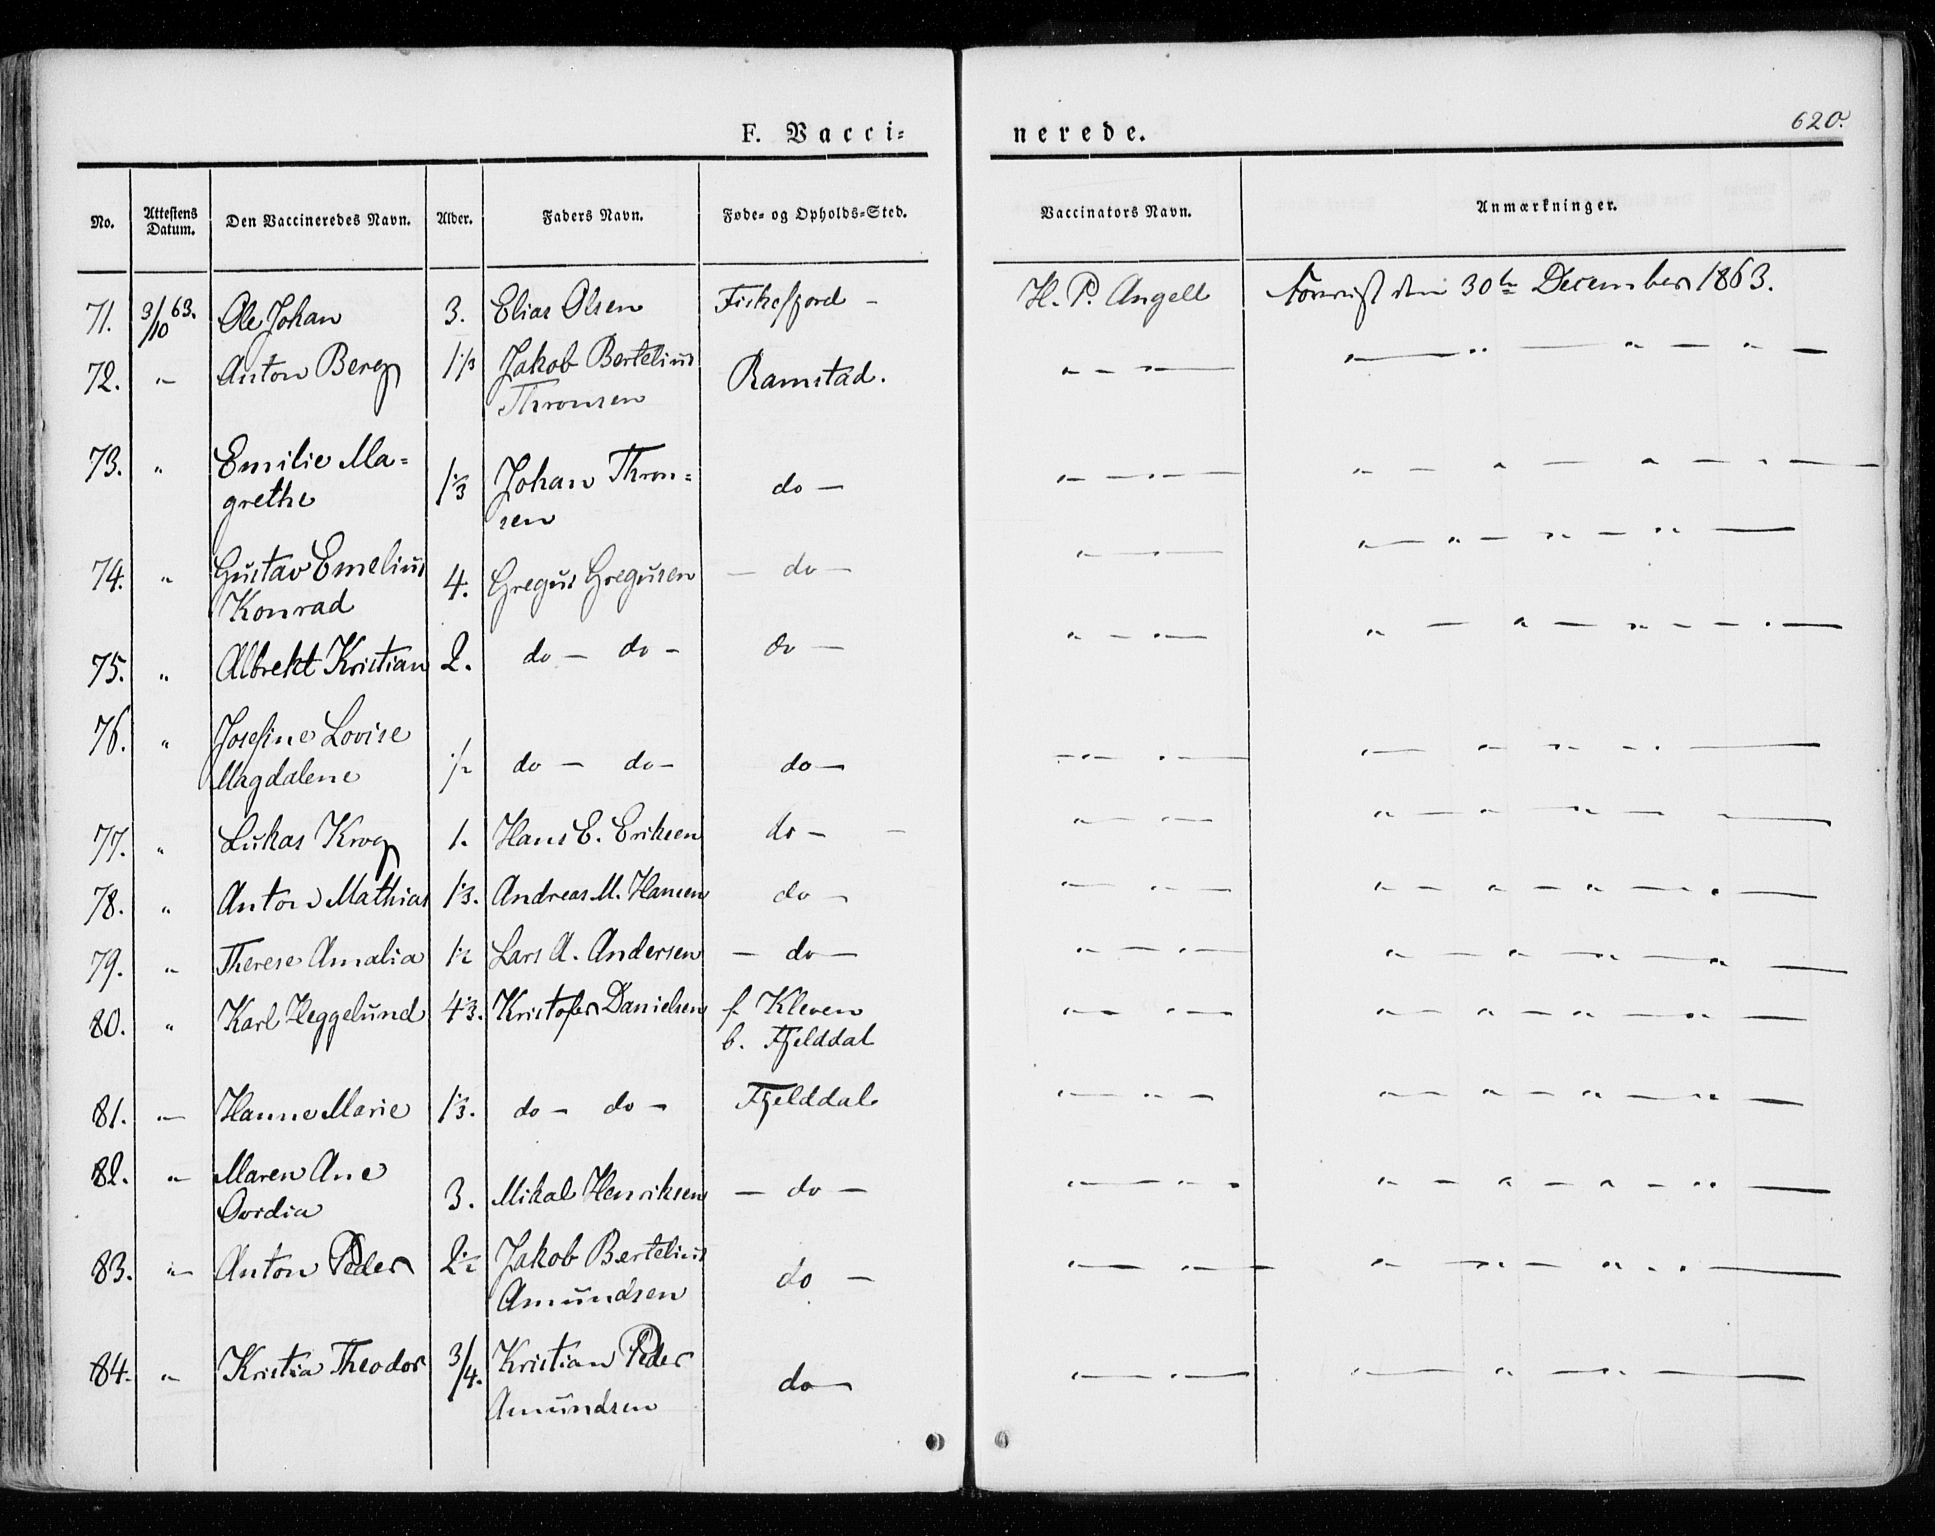 620.
F. Vacci= nerede.
No. Attestens Datum. Den Vaccineredes Navn. Alder. Faders Navn. Føde- og Opholds-Sted. Vaccinators Navn. Anmærkninger.
71. 3/10 63. Ole Johan 3. Elias Olsen Fiskefjord - H. P. Angell Forevist den 30te December 1863.
72. " Anton Berg 1 1/3 Jakob Bertelius Ramstad. " — " — " — " — " — " —
Thronsen
73. " Emilie Ma= 1 1/3 Johan Thron= do — " — " — " — " — " — " —
grethe sen
74. " Gustav Emelius 4. Gregus Gregusen — do — " — " — " — " — " — " —
Konrad
75. " Albrekt Kristian 2. do — do — do — " — " — " — " — " — " —
76. " Josefine Lovise 1/2 do — do — do — " — " — " — " — " — " —
Magdalene
77. " Lukas Krog 1. Hans E. Eriksen do — " — " — " — " — " —
78. " Anton Mathias 1 1/3. Andreas M. Hansen do — " — " — " — " — " — " —
79. " Therese Amalia 1 1/2 Lars A. Andersen — do — " — " — " — " — " — " —
80. " Karl Heggelund 4 1/3. Kristofer Danielsen f. Kleven " — " — " — " — " — " —
b. Fjelddal
81. " Hanne Marie 1 1/3. do — do — Fjelddal " — " — " — " — " — " —
82. " Maren Ane 3. Mikal Henriksen — do — " — " — " — " — " — " —
Ovidia
83. " Anton Peder 2 1/2 Jakob Bertelius do — " — " — " — " — " — " —
Amundsen
84. " Kristia Theodor 3/4. Kristian Peder do — " — " — " — " — " —
Amundsen